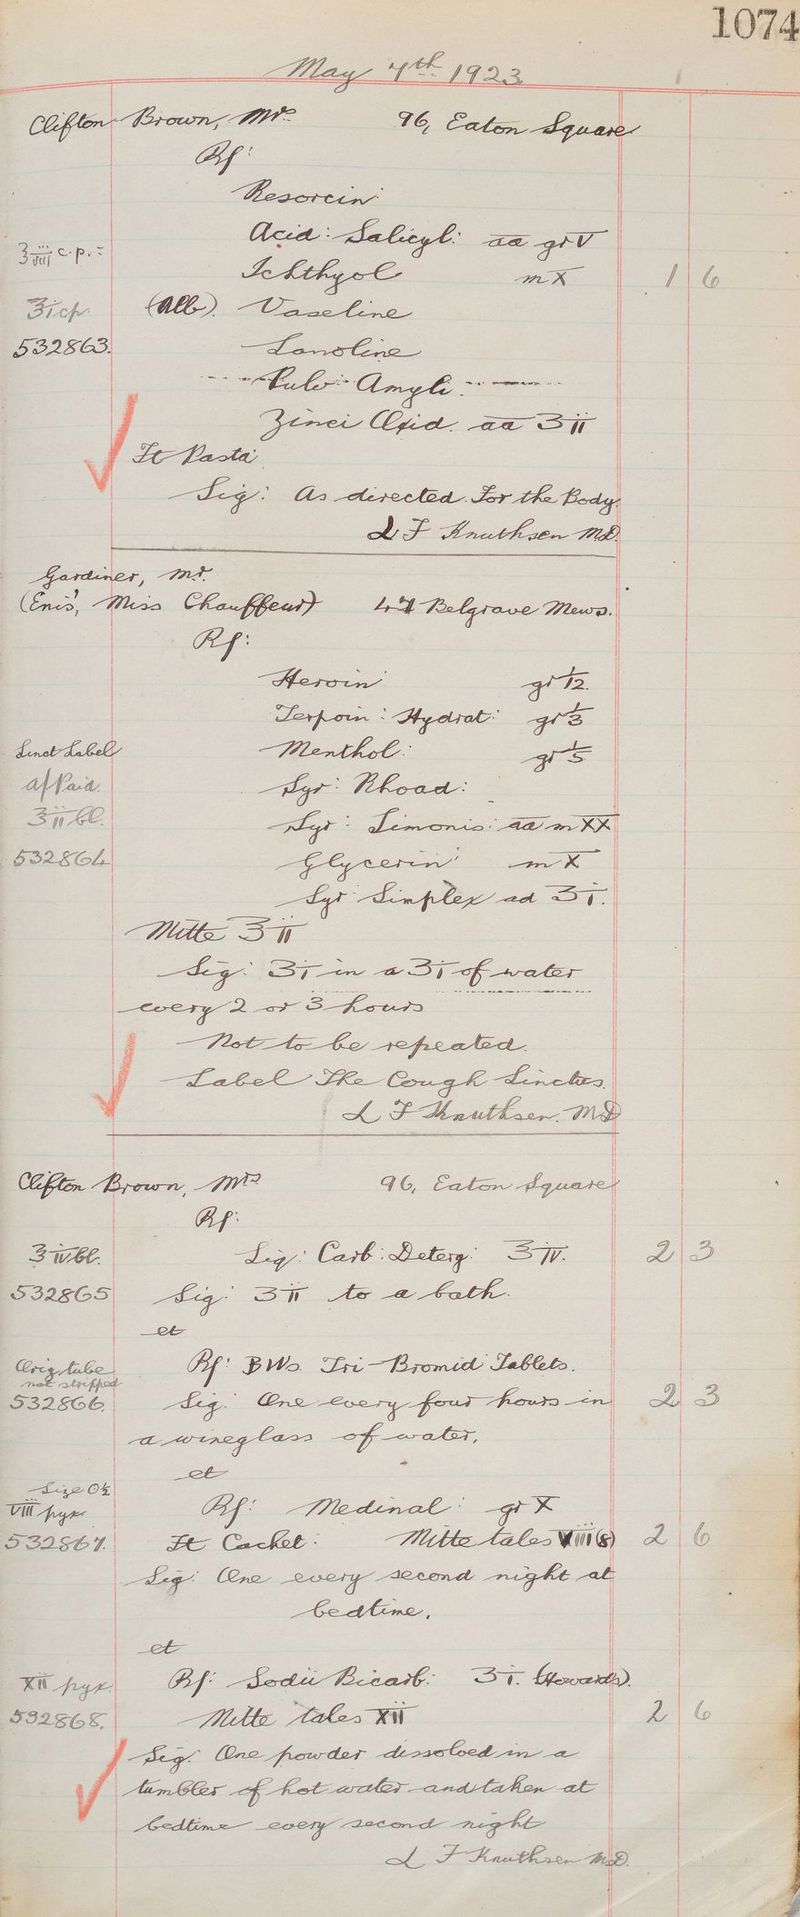 1074
May 7th 1923
Clifton Brown, Mrs. 96, Eaton Square
Rf:
Resorcin:
Acid: Salicyl: aa gr V
ʒ viii c.p.:
Ichthyol m X 1 6
ʒ i cp. (Alb). Vaseline
532863. Lanoline
Pulv: Amyli:
Zinci Oxid. aa ʒ ii
Ft Pasta
Sig: As directed. For the Body.
L F Knuthsen M.D.
Gardiner, Mr.
(Enis', Miss Chauffeur) 47 Belgrave Mews.
Rf:
Heroin gr 1/12.
Terpoin: Hydrat: gr 1/3
Linct Label Menthol: gr 1/5
a/Paid. Syr: Rhoad:
ʒ ii bl. Syr: Limonis: aa m XX
532864 Glycerin m X
Syr Simplex ad ʒ i.
Mitte ʒ ii
Sig: ʒ i in a ʒ i of water
every 2 or 3 hours
Not to be repeated.
Label The Cough Linctus.
L F Knuthsen. M.D
Clifton Brown, Mrs 96, Eaton Square
Rf:
ʒ iv bl. Liq: Carb: Deterg: ʒ iv. 2 3
532865 Sig: ʒ ii to a bath.
et
Orig tube Rf: BWs. Tri-Bromid Tablets.
not stripped
532866. Sig: One every four hours in 2 3
a wineglass of water.
et
Size 0½
viii pyx Rf: Medinal: gr X
532867. Ft Cachet: Mitte tales VIII (8) 2 6
Sig: One every second night at
bedtime.
et
XII pyx Rf: Sodii Bicarb: ʒ i. (Howards).
532868. Mitte tales XII 2 6
Sig: One powder dissolved in a
tumbler of hot water and taken at
bedtime every second night
L F Knuthsen M.D.